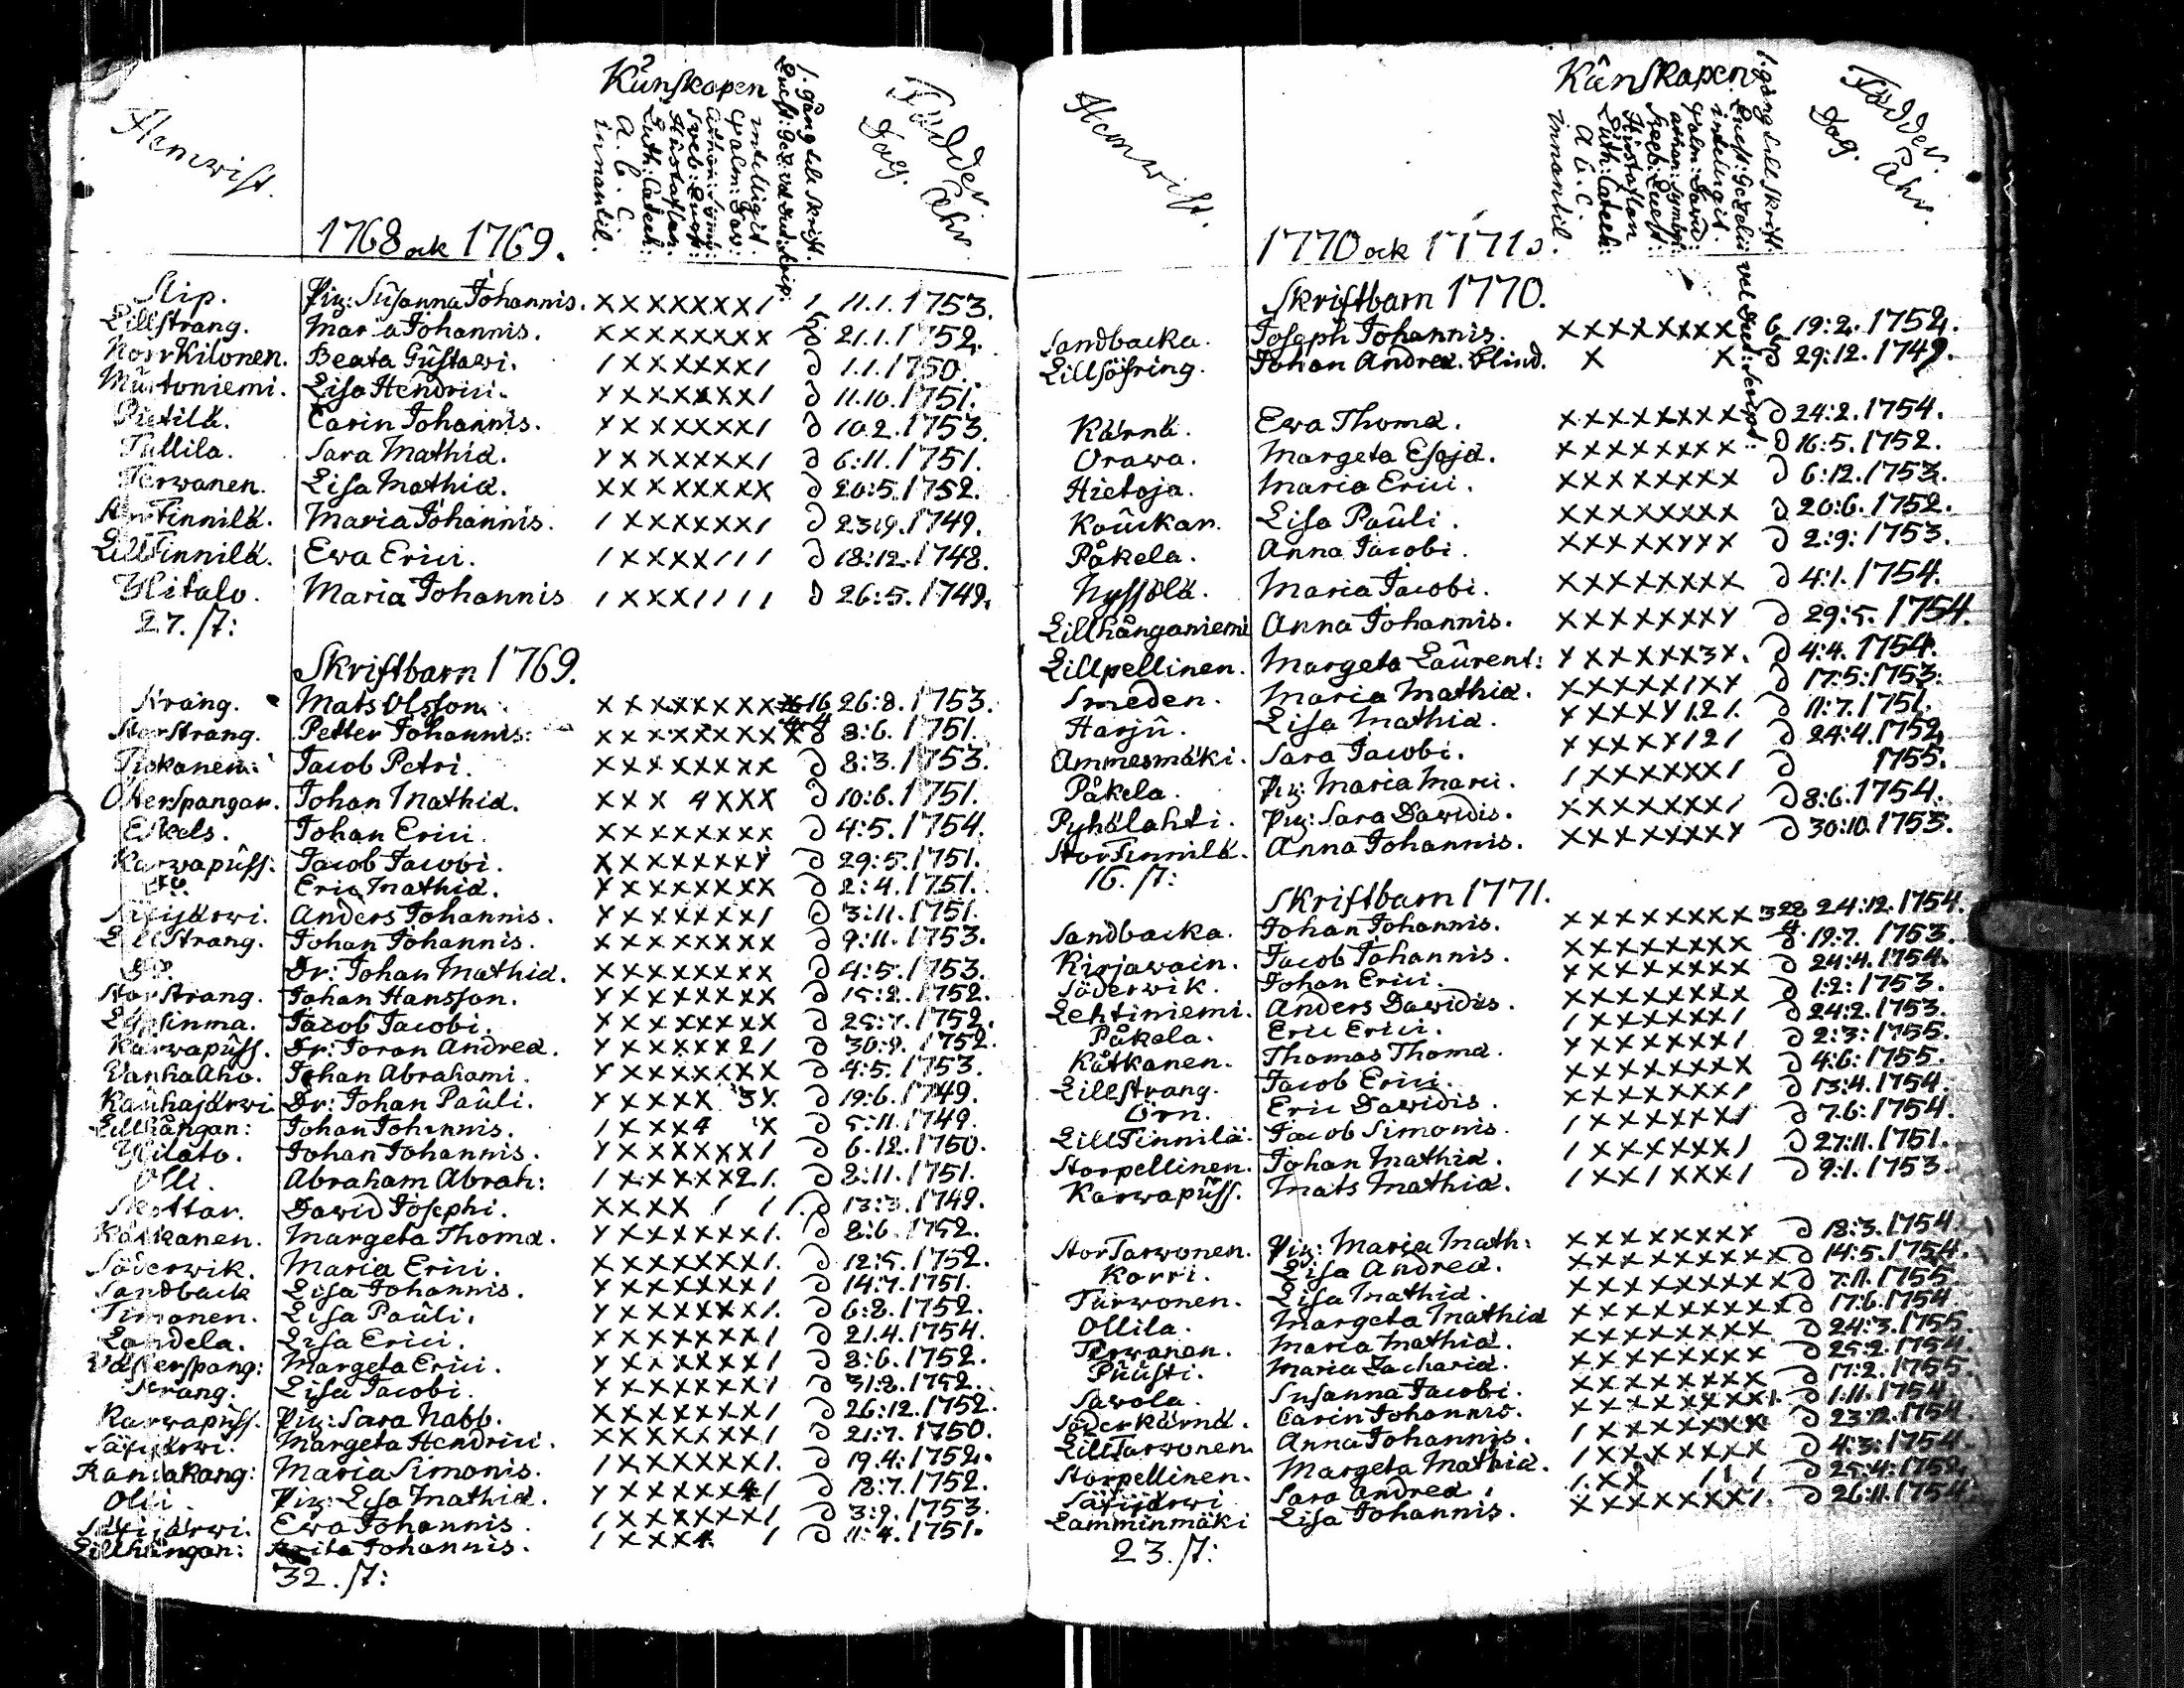 Hemwist.
1768 ock 1769.
Kůnskapen
innantil.
A. B. C.
Luth: Catech:
Hůstaflan.
Sveb: Quest:
Athan: Symb:
Psalm: Dav:
intelligit.
1. gång till Skrift.
Födder
Dag. Åhr.
Slip. Pig: Sůsanna Johannis. XXXXXXX1 1 11.1.1753.
Lillstrang. Maria Johannis. XXXXXXXX 21.1.1752.
Norrkilonen. Beata Gůstawi. 1XXXXXX1 D 1.1.1750.
Můrtoniemi. Lisa Hendrici. XXXXXXX1 D 11.10.1751.
Pietilä. Carin Johannis. XXXXXXX1 D 10.2.1753.
Tullila. Sara Mathiæ. XXXXXXX1 D 6:11.1751.
Terwanen. Lisa Mathiæ. XXXXXXXX D 20:5.1752.
StorFinnilä. Maria Johannis. 1XXXXXX1 D 23:9.1749.
LillFinnilä. Ewa Erici. 1XXXX111 D 18:12.1748.
Ylitalo. Maria Johannis 1XXX1111 D 26:5.1749.
27. St:
Skriftbarn 1769.
Strang. Mats Olsson. XXXXXXXX 16 26:8.1753.
Storstrang. Petter Johannis: XXXXXXXX 8:6.1751.
Tiokanen. Jacob Petri. XXXXXXXX D 8:3.1753.
Österspangar. Johan Mathiæ. XXX 4XXX D 10:6.1751.
Eskels. Johan Erici. XXXXXXXX D 4:5.1754.
Karwapůss: Jacob Jacobi. XXXXXXXX D 29:5.1751.
Eric Mathiæ. XXXXXXXX D 2:4.1751.
Säxijärwi. Anders Johannis. XXXXXXX1 D 3:11.1751.
Lillstrang. Johan Johannis. XXXXXXXX D 9:11.1753.
Dr: Johan Mathiæ. XXXXXXXX D 4:5.1753.
Storstrang. Johan Hansson. XXXXXXXX D 15:2.1752.
Jacob Jacobi. XXXXXXXX D 25:7.1752.
Karwapůss. Dr: Joran Andreæ. XXXXXX21 D 30:9.1752.
Wanhaaho. Johan Abrahami. XXXXXXXX D 4:5.1753.
Kaůhajärwi Dr: Johan Paůli. XXXXX 3X D 19:6.1749.
Lillhångan: Johan Johannis. 1XXX4 X D 5:11.1749.
Ylilato. Johan Johannis. XXXXXXX1 D 6.12.1750.
Olli. Abraham Abrah: 1XXXXX21. D 2:11.1751.
Skottar. Dawid Josephi. XXXX 1 11. D 13:3.1749.
Kåtkanen. Margeta Thomæ. XXXXXXX1. D 8:6.1752.
Söderwik. Maria Erici. XXXXXXX1. D 12:5.1752.
Sandback Lisa Johannis. XXXXXXX1 D 14:7.1751.
Timonen. Lisa Paůli. XXXXXXX1. D 6:8.1752.
Landela. Lisa Erici. XXXXXXX1 D 21.4.1754.
Wästerspang: Margeta Erici. XXXXXXX1 D 8:6.1752.
Strang. Lisa Jacobi. XXXXXXX1 D 31:8.1752.
Karwapůss. Pig: Sara Nabb. XXXXXXX1 D 26:12.1752.
Säxijärwi. Margeta Hendrici. XXXXXXX1 D 21:7.1750.
Kandakang: Maria Simonis. 1XXXXXX1. D 19.4:1752.
Olli. Pig: Lisa Mathiæ. XXXXXX41 D 18:7.1752.
Säxijärwi. Ewa Johannis. 1XXXXXX1 D 3:9.1753.
Lillhångan: Brita Johannis. 1XXX4 1 D 11:4.1751.
32. St:
Hemwist.
1770 ock 1771.
Kånskapen
innantil.
A B. C.
Luth: Catech:
Hůstaflan
Sveb: Quest:
Athan: Symb:
Psalm: David:
intelligit.
1. gång till Skrift.
Födder
Dag. Åhr.
Skriftbarn 1770.
Sandbacka. Joseph Johannis. XXXXXXXX 19:2.1752.
Lillsöfring. Johan Andreæ. Blind. X X D 29:12.1749.
Kärnä. Ewa Thomæ. XXXXXXXX D 24:2.1754.
Orawa. Margeta Esajæ. XXXXXXXX D 16:5.1752.
Hietoja. Maria Erici. XXXXXXXX D 6:12.1753.
Koůckan. Lisa Paůli. XXXXXXXX D 20:6.1752.
Påkela. Anna Jacobi. XXXXXXXX D 2:9:1753.
Nyssölä. Maria Jacobi. XXXXXXXX D 4:1.1754.
Lillhånganiemi Anna Johannis. XXXXXXXX D 29:5.1754.
Lillpellinen. Margeta Laůrent: XXXXXX3X. D 4:4.1754.
Smeden. Maria Mathiæ. XXXXXX1XX D 17:5:1753.
Harjů. Lisa Mathiæ. XXXXX121. D 11:7.1751.
Ammesmäki. Sara Jacobi. XXXXX121 D 24:4.1752.
Påkela. Pig: Maria Marci. 1XXXXXX1 D 1755.
Pyhälahti. Pig: Sara Dawidis. XXXXXXX1 D 8:6.1754.
StorFinnilä. Anna Johannis. XXXXXXXX D 30:10.1753.
16. St:
Skriftbarn 1771.
Sandbacka. Johan Johannis. XXXXXXXX 24:12.1754.
Kirjawain. Jacob Johannis. XXXXXXXX 19:7.1753.
Söderwik. Johan Erici. XXXXXXXX D 24:4.1754.
Lehtiniemi. Anders Dawidis. XXXXXXXX D 1:2:1753.
Påkela. Eric Erici. 1XXXXXX1 D 24:2.1753.
Kåtkanen. Thomas Thomæ. XXXXXXX1 D 2:3:1755.
Lillstrang. Jacob Erici. XXXXXXXX D 4:6:1755.
Örn. Eric Dawidis. XXXXXXX1 D 13:4.1754.
LillFinnilä. Jacob Simonis. 1XXXXXX1 D 7.6:1754.
Storpellinen. Johan Mathiæ. 1XXXXXX1 D 27:11.1751.
Karwapůss. Mats Mathiæ. 1XX1XXX1 D 9:1.1753.
StorTarwonen. Pig: Maria Math: XXXXXXXX D 18:3.1754
Korri. Lisa Andreæ. XXXXXXXXX D 14:5.1754.
Turwonen. Lisa Mathiæ. XXXXXXXXX D 7:11.1755.
Ollila. Margeta Mathiæ XXXXXXXXX D 17:6.1754
Terwanen. Maria Mathiæ. XXXXXXXX D 24:3.1755.
Půůsti. Maria Zachariæ. XXXXXXXX D 25:2.1754.
Sawola. Susanna Jacobi. XXXXXXXX D 17:2.1755.
Söderkärnä. Carin Johannis. XXXXXXXX1. D 1:11.1754.
LillTarwonen Anna Johannis. 1XXXXXXX D 23:12.1754.
Storpellinen. Margeta Mathiæ. 1XXXXXXX D 4:3:1754.
Säxijärwi Sara Andreæ. 1.XX 111 D 25:4:1752.
Lamminmäki Lisa Johannis. XXXXXXXX1. D 26:11.1754.
23. St: